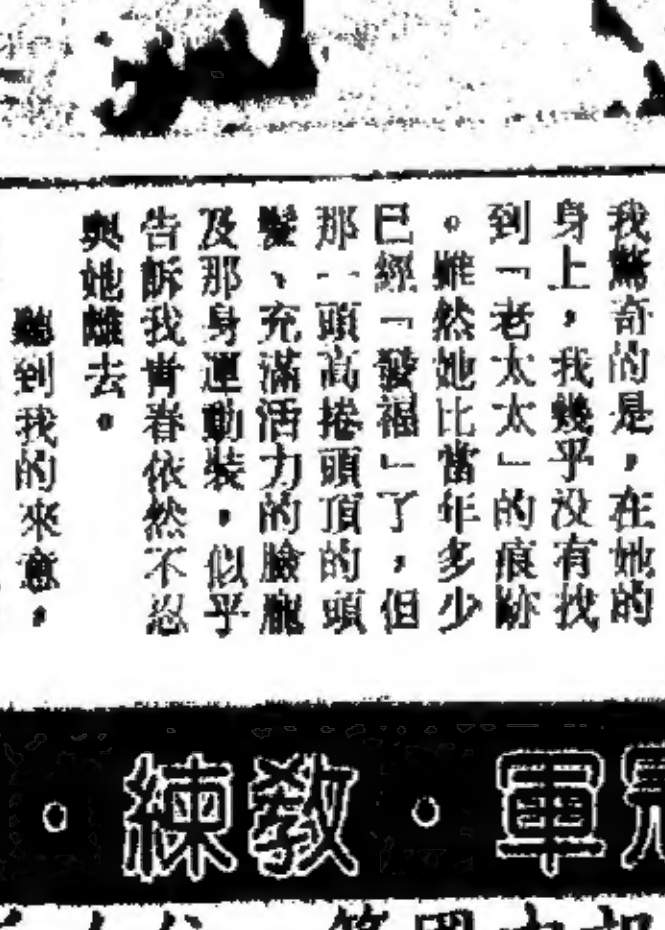 我驚奇的是，在她的
身上，我幾乎没有找
到「老太太」的痕跡
。雖然她比當年多少
已經「發福」了，但
那一頭高捲頭頂的頭
髮、充滿活力的臉龐
及那身運動裝，似乎
告訴我青春依然不忍
與她離去。
聽到我的來意，
冠軍・教練・